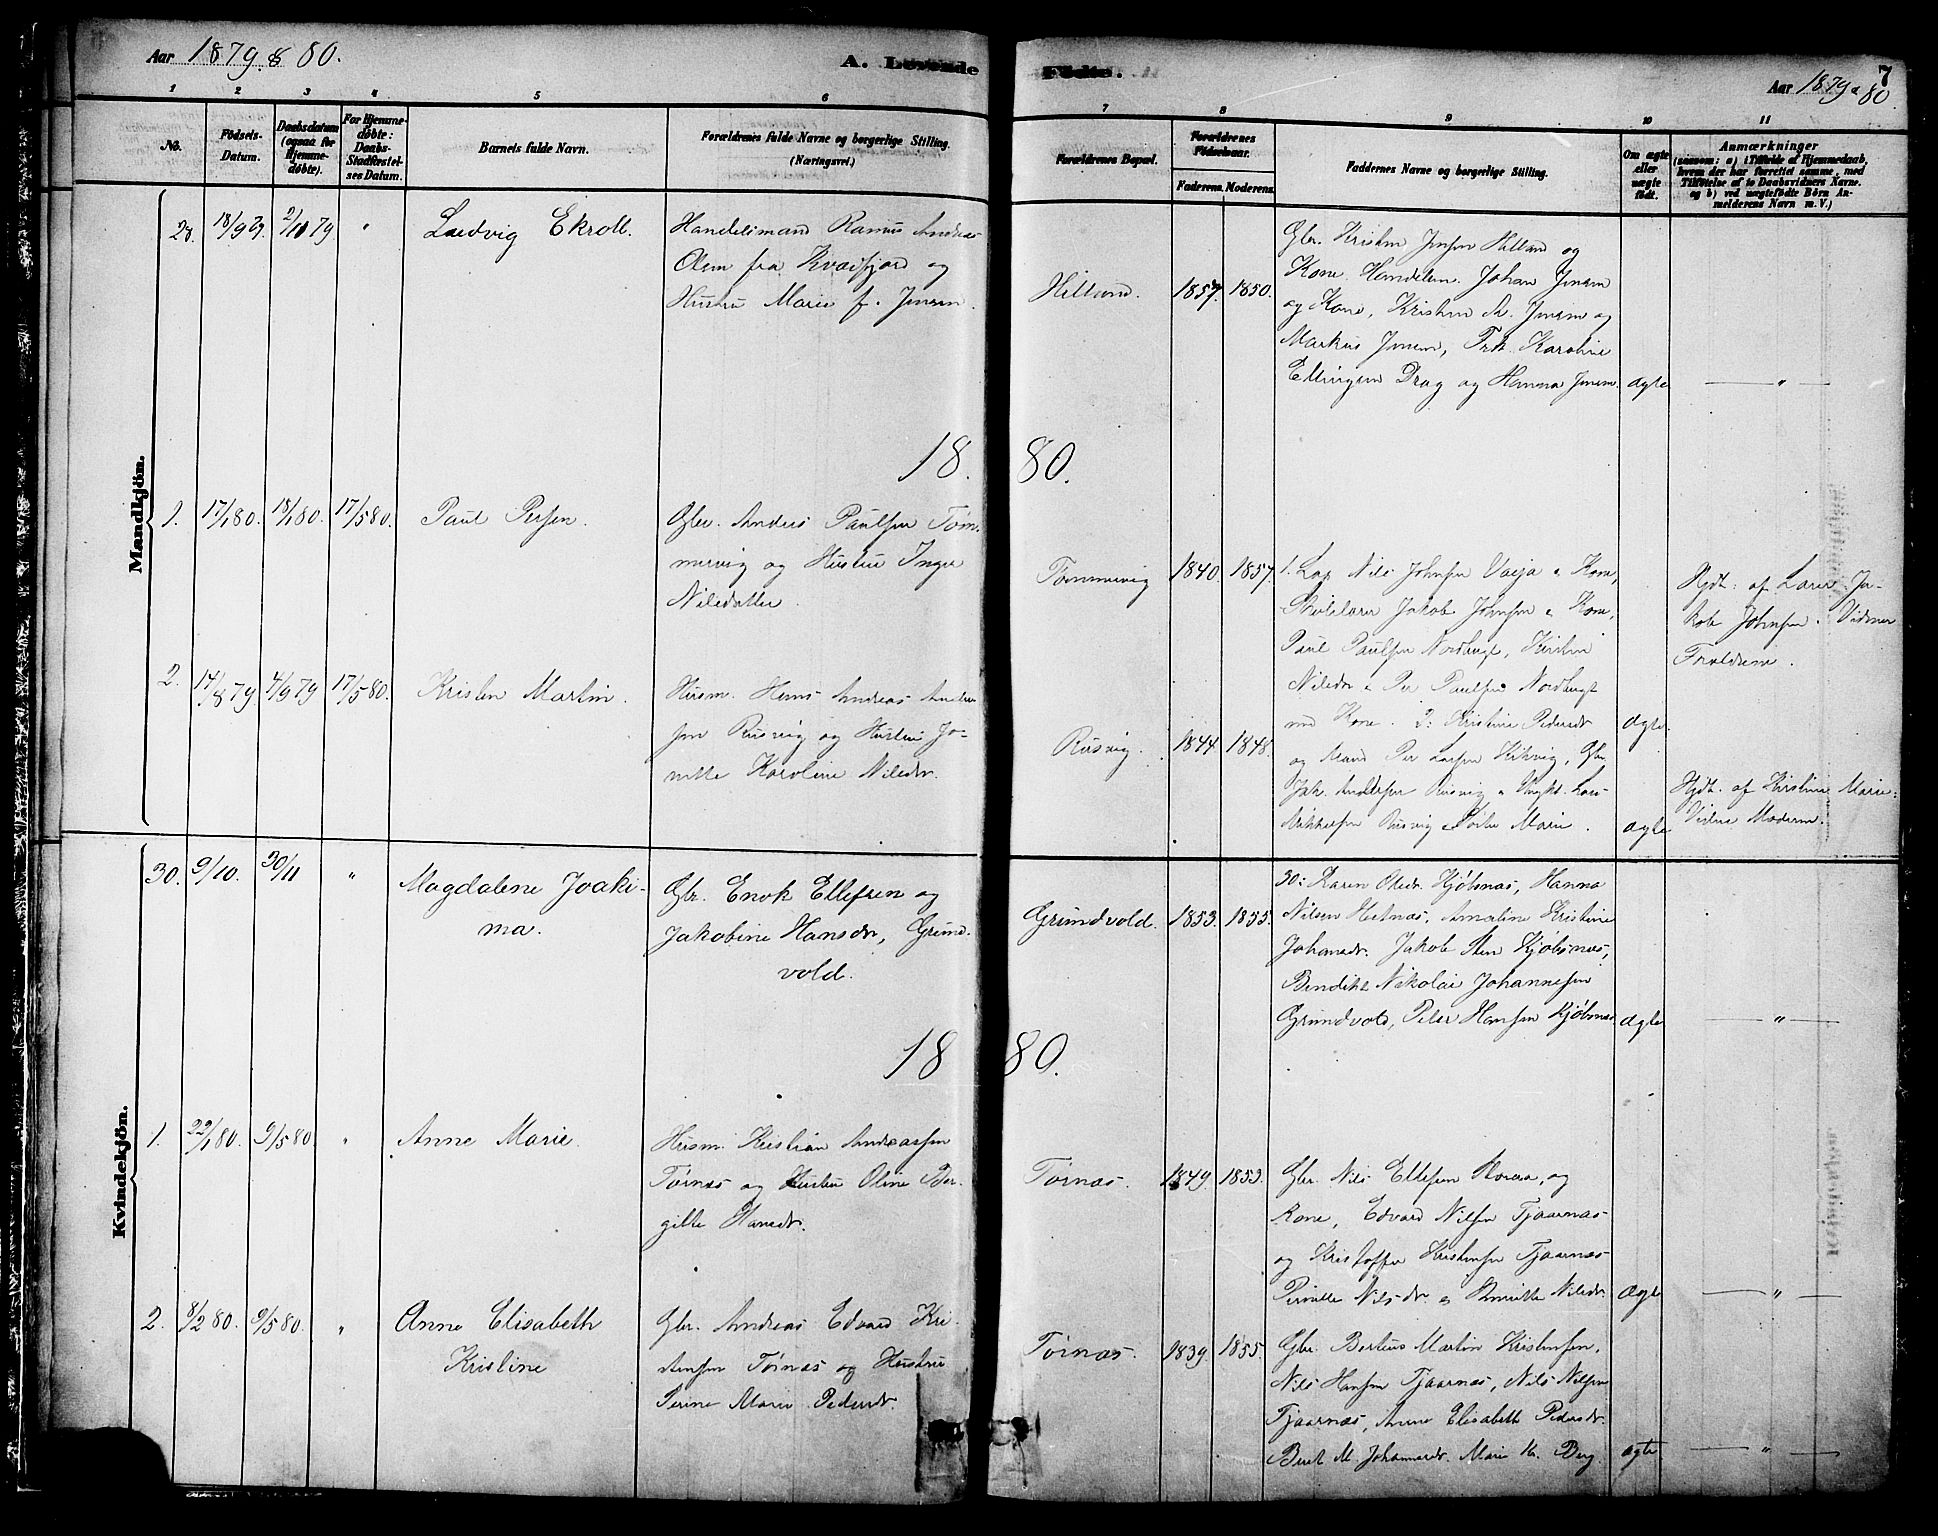 Aar 1879 & 80.
A. Levende
Fødte.
Aar 1879 & 80
7
1 2 3 4 5 6
7 8 9 10 11
No.
Fødsels-
Datum.
Daabsdatum
(ogsaa for
Hjemme-
døbte).
For Hjemme-
døbte:
Daabs-
Stadfæstel-
ses Datum.
Barnets fulde Navn.
Forældrenes fulde Navne og borgerlige Stilling.
(Næringsvei.)
Forældrenes Bopæl.
Forældrenes
Fødselsaar.
Faderens. Moderens.
Faddernes Navne og borgerlige Stilling.
Om ægte
eller
uægte
født.
Anmærkninger
(saasom: a) i Tilfælde af Hjemmedaab,
hvem der har forrettet samme, med
Tilføielse af to Daabsvidners Navne.
og b) ved uægtefødte Børn An-
melderens Navn m. V.)
Mandkjön.
18/9 79. 2/11 79 "
Ludvig Ekroll.
Handelsmand Rasmus Andreas
Olsen fra Kvæfjord og
Hustru Marie f. Jensen.
Hilland. 1857. 1850.
Gbr. Kristen Jensen Hilland og
Kone. Handelsm. Johan Jensen
og Kone, Kristen A. Jensen og
Markus Jensen, Frk. Karoline
Ellingsen Drag og Hanna Jensen. ægte — " —
1880.
1. 17/1 80. 18/1 80. 17/5 80.
Paul Persen.
Gbr. Anders Paulsen Tøm-
mervig og Hustru Inger
Nilsdatter.
Tømmervig 1840. 1857.
1. Lap Nils Johnsen Vaeja & Kone,
Skolelærer Jakob Johnsen & Kone,
Paul Paulsen Nordbugt, Kirstin
Nilsdr & Per Paulsen Nordbugt
med Kone. ægte.
Hjdt: af Lærer Ja-
kob Johnsen. Vidner
Forældrene.
2. 14/8 79. 4/9 79 17/5 80.
Kristen Martin.
Husm. Hans Andreas Ander-
sen Rusvig og Hustru Jo-
nette Karoline Nilsdr.
Rusvig. 1844. 1848.
2: Kristine Pedersdr
og Mand Per Larsen Hikvig,
Joh. Andersen Rusvig &
Mikkelsen Rusvig & Marie. ægte
Hjdt. af Kirstine Marie.
Vidne Moderen.
Kvindekjön.
30. 9/10. 30/11 "
Magdalene Joaki-
ma.
Gbr. Enok Ellefsen og
Jakobine Hansdr, Grund-
vold.
Grundvold. 1853. 1855.
30: Karen Olsdr. Kjøbsnæs, Hanna
Nilsen Hetnæs, Amaline Kristine
Johansdr. Jakob Sten Kjøbsnæs,
Bendikt Nikolai Johannesen
Grundvold, Peter Hansen Kjøbsnæs. ægte — " —
1880.
1. 22/1 80. 9/5 80 "
Anne Marie.
Husm. Kristian Andreassen
Tørnæs og Hustru Oline Ber-
gitte Hansdr.
Tørnæs. 1849. 1853.
Gbr. Nils Ellefsen Horaa, og
Kone, Edvard Nilsen Tjaarnæs
og Kristoffer Kristensen Tjaarnæs
Pernille Nilsdr. & Nilsdr. ægte — " —
2. 8/2 80. 9/5 80. "
Anne Elisabeth
Kristine
Gbr. Andreas Edvard Kri-
stensen Tørnæs og Hustru
Perine Marie Pedersdr.
Tørnæs. 1839. 1855.
Gbr. Berteus Martin Kristensen,
Nils Hansen Tjaarnæs, Nils Nilsen
Tjaarnæs, Anne Elisabeth Pedersdr.
Berit M. Johannesdr. Marie K. Berg. ægte — " —